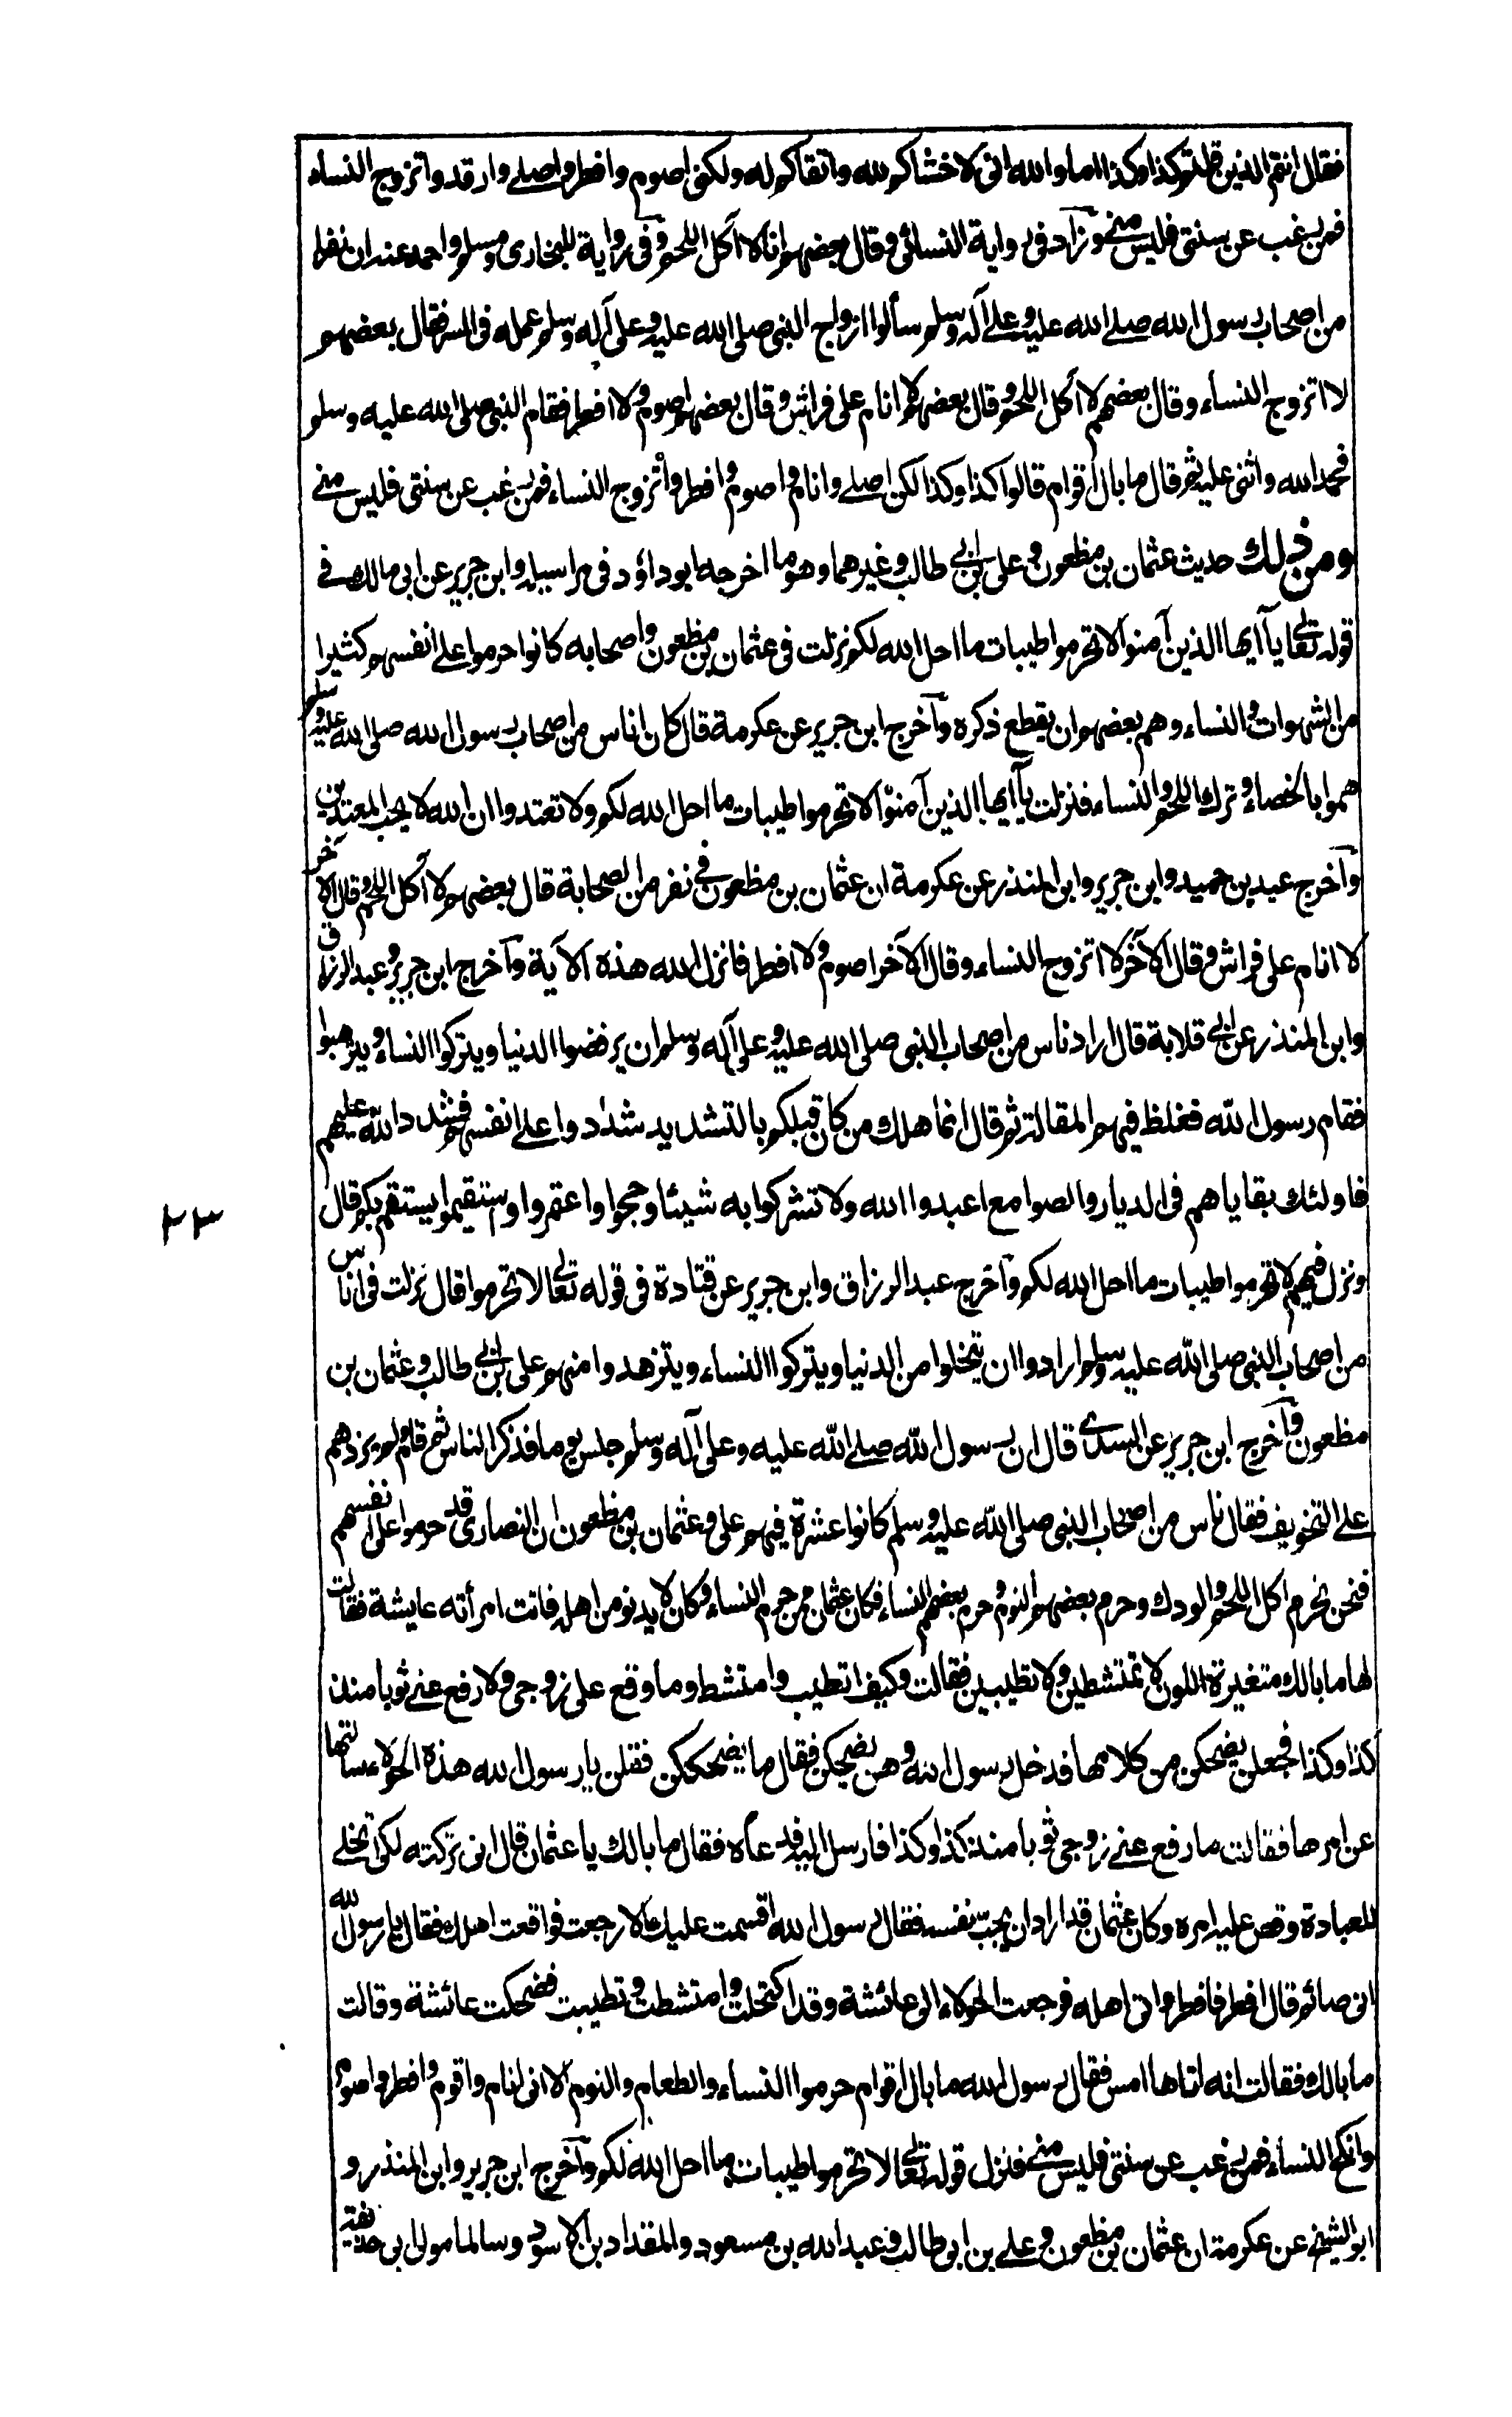 فقال انتم الذين قلتم كذا وكذا اما والله انى لاخشاكم لله واتقاكم له ولكنى اصوم وافطر واصلے وارقد واتزوج النساء
فمن رغب عن سنتى فليس منے وزاد فى رواية النسائى وقال بعضهم انا لا آكل اللحم وفى رواية للبخارى ومسلم واحمد عنه ان نفرا
من اصحاب رسول الله صلے الله عليه وعلے آله وسلم سألوا ازواج النبى صلى الله عليه وعلى آله وسلم عن عمله فى السر فقال بعضهم
لا اتزوج النساء وقال بعضهم لا آكل اللحم وقال بعضهم لا انام على فراش وقال بعضهم اصوم ولا افطر فقام النبى صلى الله عليه وسلم
فحمد الله واثنى عليه ثم قال ما بال اقوام قالوا كذا وكذا لكن اصلے وانام واصوم وافطر واتزوج النساء فمن رغب عن سنتى فليس منے
ومن ذلك حديث عثمان بن مظعون وعلى بن ابے طالب وغيرهما وهو ما اخرجه ابوداؤد فى مراسيله وابن جرير عن ابى مالك فے
قوله تعالے يا آايها الذين آمنوا لا تحرموا طيبات ما احل الله لكم نزلت فى عثمان بن مظعون واصحابه كانوا حرموا علے انفسهم كثيرا
من الشهوات والنساء وهم بعضهم ان يقطع ذكره وآخرج ابن جرير عن عكرمة قال كان اناس من اصحاب رسول الله صلى الله عليه وسلم
هموا بالخصاء وترك اللحم والنساء فنزلت يا آايها الذين آمنوا لا تحرموا طيبات ما احل الله لكم ولا تعتدوا ان الله لا يحب المعتدين
وآخرج عبد بن حميد وابن جرير وابن المنذر عن عكرمة ان عثمان بن مظعون فے نفر من الصحابة قال بعضهم لا آكل اللحم وقال الآخر
لا انام على فراش وقال الآخر لا اتزوج النساء وقال الآخر اصوم ولا افطر فانزل الله هذه الآية وآخرج ابن جرير وعبد الرزاق
وابن المنذر عن ابے قلابة قال اراد ناس من اصحاب النبى صلى الله عليه وعلى آله وسلم ان يرفضوا الدنيا ويتركوا النساء ويترهبوا
فقام رسول الله فغلظ فيهم المقالة ثم قال انما هلك من كان قبلكم بالتشديد شددوا علے انفسهم فشدد الله عليهم
فاولئك بقاياهم فى الديار والصوامع اعبدوا الله ولا تشركوا به شيئا وحجوا واعتمروا واستقيموا يستقم بكم قال
ونزل فيهم لا تحرموا طيبات ما احل الله لكم وآخرج عبد الرزاق وابن جرير عن قتادة فى قوله تعالے لا تحرموا قال نزلت فى اناس
من اصحاب النبى صلى الله عليه وسلم ارادوا ان يتخلوا من الدنيا ويتركوا النساء ويتزهدوا منهم على بن ابے طالب وعثمان بن
مظعون وآخرج ابن جرير عن السدے قال ان رسول الله صلے الله عليه وعلى آله وسلم جلس يوما فذكر الناس ثم قام ولم يزدهم
علے التخويف فقال ناس من اصحاب النبى صلى الله عليه وسلم كانوا عشرة فيهم على وعثمان بن مظعون ان النصارى قد حرموا على انفسهم
فنحن نحرم اكل اللحم والودك وحرم بعضهم النوم وحرم بعضهم النساء فكان عثمان ممن حرم النساء وكان لا يدنو من اهله فاتت امرأته عايشة فقالت
لها ما بالك متغيرة اللون لا تمتشطين ولا تطيبين فقالت وكيف اتطيب وامتشط وما وقع على زوجى ولا رفع عنے ثوبا منذ
كذا وكذا فجعلن يضحكن من كلامها فدخل رسول الله وهن يضحكن فقال ما يضحككن فقلن يا رسول الله هذه الحولاء سألتها
عن امرها فقالت ما رفع عنے زوجى ثوبا منذ كذا وكذا فارسل اليه فدعاه فقال ما بالك يا عثمان قال انى تركته لكى اتخلے
للعبادة وقص عليه امره وكان عثمان قد اراد ان يجب نفسه فقال رسول الله اقسمت عليك الا رجعت فواقعت اهلك فقال يا رسول الله
انى صائم قال افطر فافطر واتى اهله فرجعت الحولاء الى عائشة وقد اكتحلت وامتشطت وتطيبت فضحكت عائشة وقالت
ما بالك فقالت انه اتاها امس فقال رسول الله ما بال اقوام حرموا النساء والطعام والنوم الا انى انام واقوم وافطر واصوم
وانكح النساء فمن رغب عن سنتى فليس منے فنزل قوله تعالے لا تحرموا طيبات ما احل الله لكم وآخرج ابن جرير وابن المنذر و
ابو الشيخ عن عكرمة ان عثمان بن مظعون وعلے بن ابى طالب وعبد الله بن مسعود والمقداد بن الاسود وسالما مولى ابى حذيفة
٢٣